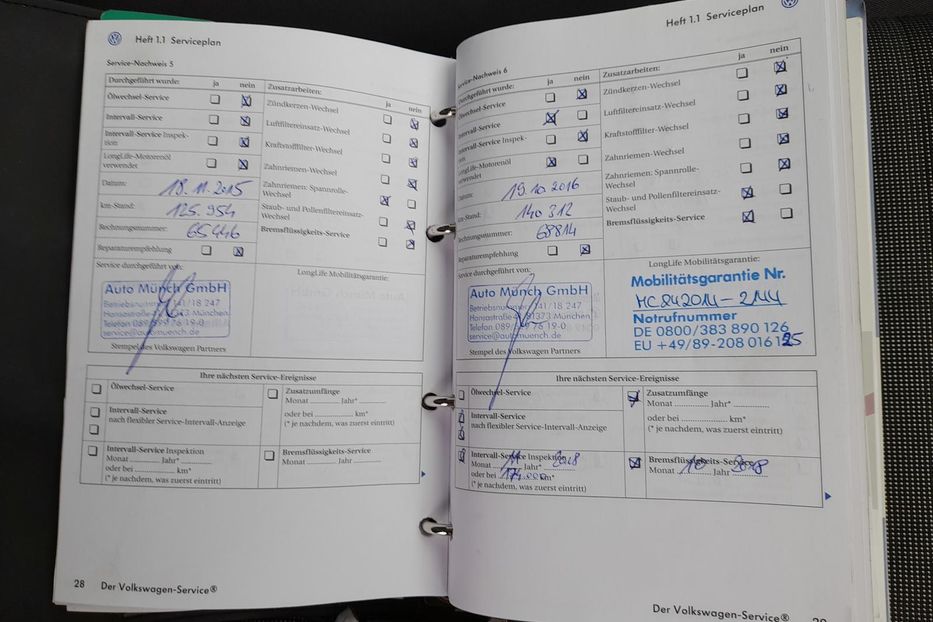 Heft 1.1 Serviceplan
Service-Nachweis 5
Durchgeführt wurde: ja nein
Ölwechsel-Service
Intervall-Service
Intervall-Service Inspek-
tion
LongLife-Motorenöl
verwendet
Datum: 18.11.2015
km-Stand: 125.954
Rechnungsnummer: 65446
Reparaturempfehlung
Service durchgeführt von:
Auto Münch GmbH
Betriebsnummer 141/18 247
Hansastraße 4 81373 München
Telefon 089/599 76 19-0
service@automuench.de
Stempel des Volkswagen Partners
Zusatzarbeiten: ja nein
Zündkerzen-Wechsel
Luftfiltereinsatz-Wechsel
Kraftstofffilter-Wechsel
Zahnriemen-Wechsel
Zahnriemen: Spannrolle-
Wechsel
Staub- und Pollenfiltereinsatz-
Wechsel
Bremsflüssigkeits-Service
LongLife Mobilitätsgarantie:
Ihre nächsten Service-Ereignisse
Ölwechsel-Service
Intervall-Service
nach flexibler Service-Intervall-Anzeige
Intervall-Service Inspektion
Monat Jahr*
oder bei km*
(* je nachdem, was zuerst eintritt)
Zusatzumfänge
Monat Jahr*
oder bei km*
(* je nachdem, was zuerst eintritt)
Bremsflüssigkeits-Service
Monat Jahr
28 Der Volkswagen-Service®
Heft 1.1 Serviceplan
Service-Nachweis 6
Durchgeführt wurde: ja nein
Ölwechsel-Service
Intervall-Service
Intervall-Service Inspek-
tion
LongLife-Motorenöl
verwendet
Datum: 19.10.2016
km-Stand: 140 312
Rechnungsnummer: 68814
Reparaturempfehlung
Service durchgeführt von:
Auto Münch GmbH
Betriebsnummer 141/18 247
81373 München
Telefon 089/599 76 19-0
service@automuench.de
Stempel des Volkswagen Partners
Zusatzarbeiten: ja nein
Zündkerzen-Wechsel
Luftfiltereinsatz-Wechsel
Kraftstofffilter-Wechsel
Zahnriemen-Wechsel
Zahnriemen: Spannrolle-
Wechsel
Staub- und Pollenfiltereinsatz-
Wechsel
Bremsflüssigkeits-Service
LongLife Mobilitätsgarantie:
Mobilitätsgarantie Nr.
MC842014-2144
Notrufnummer
DE 0800/383 890 126
EU +49/89-208 016125
Ihre nächsten Service-Ereignisse
Ölwechsel-Service
Intervall-Service
nach flexibler Service-Intervall-Anzeige
Intervall-Service Inspektion
Monat 11 Jahr* 2018
oder bei 174.000 km*
(* je nachdem, was zuerst eintritt)
Zusatzumfänge
Monat Jahr*
oder bei km*
(* je nachdem, was zuerst eintritt)
Bremsflüssigkeits-Service
Monat 10 Jahr 2018
Der Volkswagen-Service®